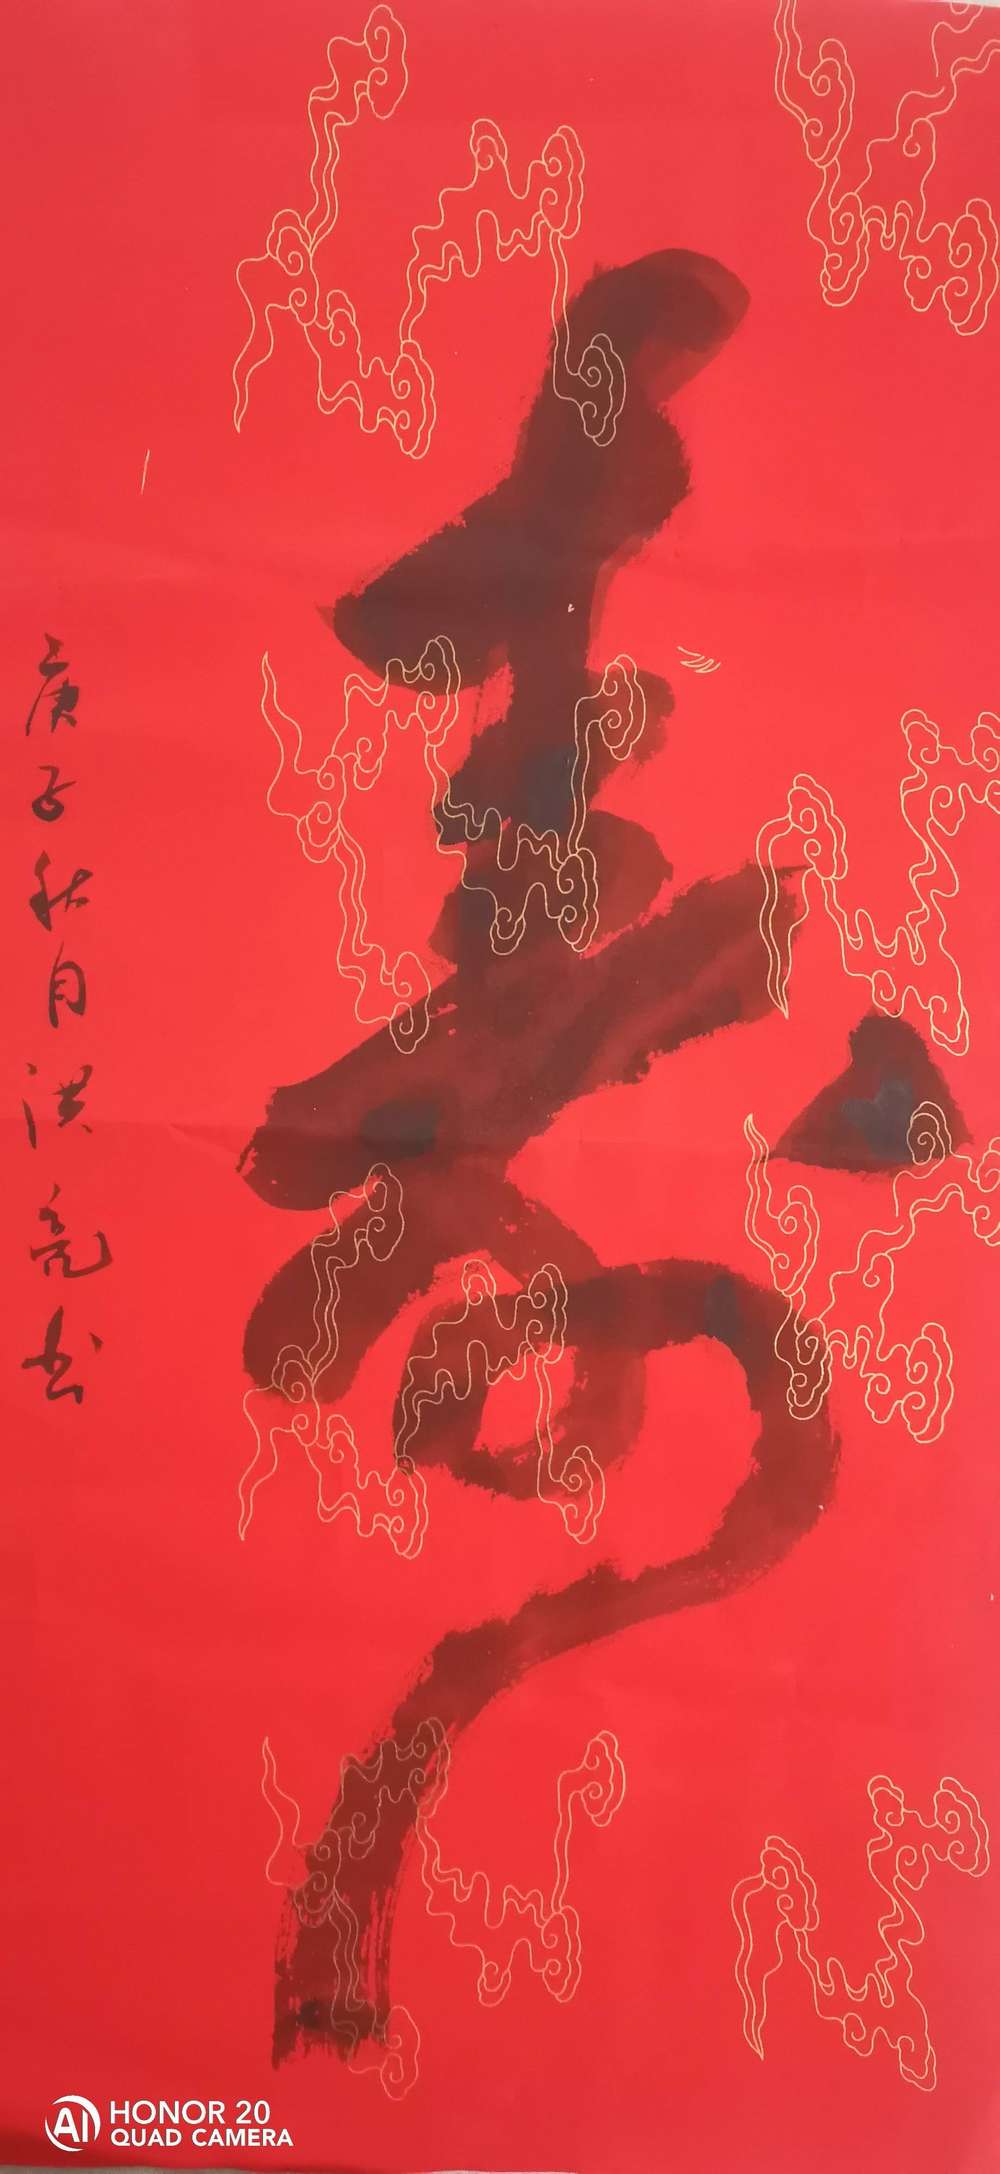 寿
庚子秋月洪亮书
AI HONOR 20
QUAD CAMERA